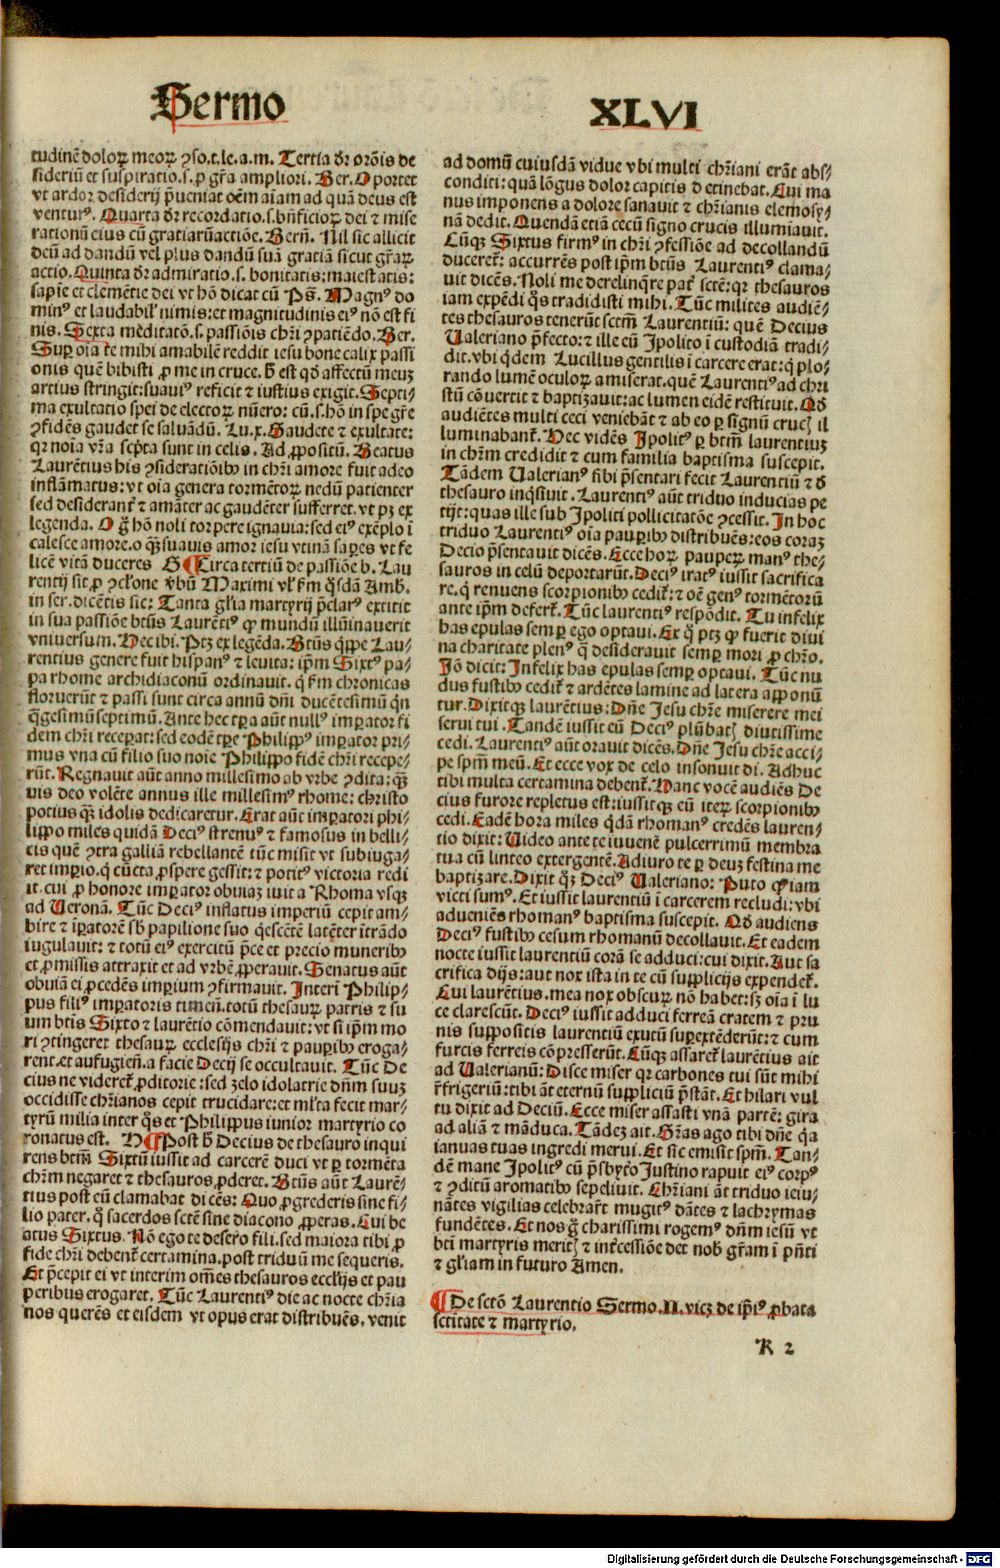 Sermo XLVI
tudinē doloꝝ meoꝝ ꝯso.t.le.a.m. Tertia dr̄ orōis de
siderium et suspiratio.s.ꝑ gr̄a ampliori. Ber. O poꝛtet
vt ardoꝛ desiderij p̄ueniat oēm aīam ad quā deus est
venturꝰ. Quarta dr̄ recordatio.s.bn̄ficioꝝ dei ⁊ mise
rationū eius cū gratiaꝝ actiōe. Bern̄. Nil sic allicit
deū ad dandū vel plus dandū suā gratiā sicut gr̄aꝝ
actio. Quinta dr̄ admiratio.s. bonitatis: maiestatis:
sapīe et clemētie dei vt hō dicat cū Ps̄. Magnꝰ do
minꝰ et laudabilꝭ nimis: et magnitudinis eiꝰ nō est fi
nis. Sexta meditatō.s. passiōis chr̄i ꝯpatiēdo. Ber.
Suꝑ oīa te mihi amabilē reddit iesu bone calix passi
onis quē bibisti ꝓ me in cruce. h̄ est qd̄ affectū meuꝫ
artius stringit: suauiꝰ reficit ⁊ iustius exigit. Septi-
ma exultatio spei de electoꝝ nūero: cū.s.hō in spe gr̄e
ꝯfidēs gaudet se saluādū. Lu.x. Gaudete ⁊ exultate:
qꝛ noīa vr̄a scp̄ta sunt in celis. Ad ꝓpositū. Beatus
Laurētius his ꝯsideratiōibꝰ in chr̄i amore fuit adeo
inflāmatus: vt oīa genera toꝛmētoꝝ nedū patienter
sed desideranṫ ⁊ amāter ac gaudēter sufferret. vt pꝫ ex
legenda. O g̊ hō noli toꝛpere ignauia: sed eiꝰ exēplo ī
calesce amore. o qꝫ̄ suauis amoꝛ iesu vtinā saꝑes vt fe
licē vitā duceres G ¶ Circa tertiū de passiōe b. Lau
rentij sit ꝓ ꝯclꝰone vb̄ū Maximi vl̓ fm̄ qͥsdā Amb̄.
in ser. dicētis sic: Tanta gl̓ia martyrij p̄clarꝰ extitit
in sua passiōe btūs Laurētiꝰ ꝙ mundū illūinauerit
vniuersum. Hec ibi. Ptꝫ ex legēda. Btūs qͥppe Lau-
rentius genere fuit hispanꝰ ⁊ leuita: ip̄m Sixtꝰ pa-
pa rhome archidiaconū oꝛdinauit. qͥ fm̄ chronicas
floꝛuerūt ⁊ passi sunt circa annū dn̄i ducētesimū qͥn
qͣgesimū septimū. Ante hec tꝑa aūt nullꝰ imꝑatoꝛ fi
dem chr̄i receꝑat: sed eodē tꝑe Philippꝰ imꝑatoꝛ pri-
mus vna cū filio suo noīe Philippo fidē chr̄i recepe-
rūt. Regnauit aūt anno millesimo ab vrbe ꝯdita: qꝫ̄
uis deo volēte annus ille millesimꝰ rhome: christo
potius qꝫ̄ idolis dedicaretur. Erat aūt imꝑatoꝛi phi-
lippo miles quidā Deciꝰ strenuꝰ ⁊ famosus in belli-
cis quē ꝯtra galliā rebellantē tūc misit vt subiuga-
ret imꝑio. qͥ cūcta ꝓspere gessit: ⁊ potitꝰ victoꝛia redi
it. cui ꝓ honoꝛe imꝑatoꝛ obuiaꝫ iuit a Rhoma vsqꝫ
ad Veronā. Tūc Deciꝰ inflatus imperiū cepit am-
bire ⁊ īꝑatoꝛē sb̄ papilione suo qͥescētē latēter ītrādo
iugulauit: ⁊ totū eiꝰ exercitū p̄ce et precio muneribꝰ
et ꝓmissis attraxit et ad vrbē ꝓperauit. Senatus aūt
obuiā ei ꝓcedēs imꝑium ꝯfirmauit. Interī Philip-
pus filiꝰ imꝑatoꝛis timen̄. totū thesauꝝ patris ⁊ su
um btīs Sixto ⁊ laurētio cōmendauit: vt si ip̄m mo
ri ꝯtingeret thesauꝝ ecclesijs chr̄i ⁊ pauꝑibꝰ eroga-
rent. et aufugien̄. a facie Decij se occultauit. Tūc De
cius ne videreṫ ꝓditoꝛie: sed zelo idolatrie dn̄m suuꝫ
occidisse chr̄ianos cepit trucidare: et ml̓ta fecit mar-
tyrū milia inter qͦs et Philippus iunioꝛ martyrio co
ronatus est. H ¶ Post h̄ Decius de thesauro inqui
rens btm̄ Sixtū iussit ad carcerē duci vt ꝑ toꝛmēta
chr̄m negaret ⁊ thesauros ꝓderet. Btūs aūt Laurē-
tius post eū clamabat dicēs: Quo ꝓgrederis sine fi-
lio pater. qͦ sacerdos sctē sine diacono ꝓperas. Cui be
atus Sixtus. Nō ego te desero fili. sed maioꝛa tibi ꝓ
fide chr̄i debenṫ certamina. post triduū me sequeris.
Et p̄cepit ei vt interim om̄es thesauros eccl̓ijs et pau
peribus erogaret. Tūc Laurentiꝰ die ac nocte chr̄ia
nos querēs et eisdem vt opus erat distribuēs. venit
ad domū cuiusdā vidue vbi multi chr̄iani erāt abs-
conditi: quā lōgus doloꝛ capitis detinebat. Cui ma
nus imponens a doloꝛe sanauit ⁊ chr̄ianis elemosy-
nā dedit. Quendā etiā cecū signo crucis illumiauit.
Cūqꝫ Sixtus firmꝰ in chr̄i ꝯfessiōe ad decollandū
ducereṫ: accurrēs post ip̄m btūs Laurentiꝰ clama-
uit dicēs. Noli me derelinqͥre patꝭ sctē: qꝛ thesauros
iam expēdi qͦs tradidisti mihi. Tūc milites audiē-
tes thesauros tenerūt sctm̄ Laurentiū: quē Decius
Valeriano p̄fecto: ⁊ ille eū Ipolito ī custodiā tradi-
dit. vbi qͥdem Lucillus gentilis ī carcere erat: qͥ plo-
rando lumē oculoꝝ amiserat. quē Laurentiꝰ ad chri
stū cōuertit ⁊ baptizauit: ac lumen eidē restituit. Qd̄
audiētes multi ceci veniebāt ⁊ ab eo ꝑ signū crucꝭ il
luminabanṫ. Hec vidēs Ipolitꝰ ꝑ btm̄ laurentiuꝫ
in chr̄m credidit ⁊ cum familia baptisma suscepit.
Tādem Valerianꝰ sibi p̄sentari fecit Laurentiū ⁊ d̄
thesauro inqͥsiuit. Laurentiꝰ aūt triduo inducias pe
tijt: quas ille sub Ipoliti pollicitatōe ꝯcessit. In hoc
triduo Laurentiꝰ oīa pauꝑibꝰ distribuēs: eos coꝛaꝫ
Decio p̄sentauit dicēs. Ecce hoꝝ pauꝑeꝝ manꝰ the-
sauros in celū depoꝛtarūt. Deciꝰ iratꝰ iussit sacrifica
re. qͥ renuens scoꝛpionibꝰ cediṫ: ⁊ oē genꝰ toꝛmētoꝛū
ante ip̄m deferṫ. Tūc laurentiꝰ respōdit. Tu infelix
has epulas semꝑ ego optaui. Ex q̊ ptꝫ ꝙ fuerit diui
na charitate plenꝰ qͥ desiderauit semꝑ moꝛi ꝓ chr̄o.
Iō dicit: Infelix has epulas semꝑ optaui. Tūc nu
dus fustibꝰ cediṫ ⁊ ardētes lamine ad latera apponū
tur. Dixitqꝫ laurētius: Dn̄e Jesu chr̄e miserere mei
serui tui. Tandē iussit eū Deciꝰ plūbatꝭ diutissime
cedi. Laurentiꝰ aūt oꝛauit dicēs. Dn̄e Jesu chr̄e acci-
pe spm̄ meū. Et ecce vox de celo insonuit di. Adhuc
tibi multa certamina debenṫ. Hanc vocē audiēs De
cius furoꝛe repletus est: iussitqꝫ eū iteꝝ scoꝛpionibꝰ
cedi. Eadē hoꝛa miles qͥdā rhomanꝰ credēs lauren-
tio dixit: Video ante te iuuenē pulcerrimū membra
tua cū linteo extergentē. Adiuro te ꝑ deuꝫ festina me
baptizare. Dixit qͦꝫ Deciꝰ Valeriano: Puto ꝙ iam
victi sumꝰ. Et iussit laurentiū ī carcerem recludi: vbi
adueniēs rhomanꝰ baptisma suscepit. Qd̄ audiens
Deciꝰ fustibꝰ cesum rhomanū decollauit. Et eadem
nocte iussit laurentiū coꝛā se adduci: cui dixit. Aut sa
crifica dijs: aut nox ista in te cū supplicijs expendeṫ.
Cui laurētius. mea nox obscuꝝ nō habet: sꝫ oīa ī lu
ce clarescūt. Deciꝰ iussit adduci ferreā cratem ⁊ pru
nis suppositis laurentiū exutū suꝑextēderūt: ⁊ cum
furcis ferreis cōpresserūt. Cūqꝫ assareṫ laurētius ait
ad Valerianū: Disce miser qꝛ carbones tui sūt mihi
r̄frigeriū: tibi āt eternū suppliciū p̄stāt. Et hilari vul
tu dixit ad Deciū. Ecce miser assasti vnā partē: gira
ad aliā ⁊ māduca. Tādeꝫ ait. Gr̄as ago tibi dn̄e qͣ̄
ianuas tuas ingredi merui. Et sic emisit spm̄. Tan-
dē mane Ipolitꝰ cū p̄sbyt̓o Justino rapuit eiꝰ coꝛpꝰ
⁊ ꝯditū aromatibꝰ sepeliuit. Chr̄iani āt triduo ieiu-
nātes vigilias celebrarṫ mugitꝰ dātes ⁊ lachrymas
fundētes. Et nos g̊ charissimi rogemꝰ dn̄m iesū vt
btī martyris meritꝭ ⁊ int̓cessiōe det nob̓ gr̄am ī pn̄ti
⁊ gl̓iam in futuro Amen.
¶ De sctō Laurentio Sermo.II.vicꝫ de ip̄iꝰ ꝓbata
sctītate ⁊ martyrio.
K 2
Digitalisierung gefördert durch die Deutsche Forschungsgemeinschaft - DFG